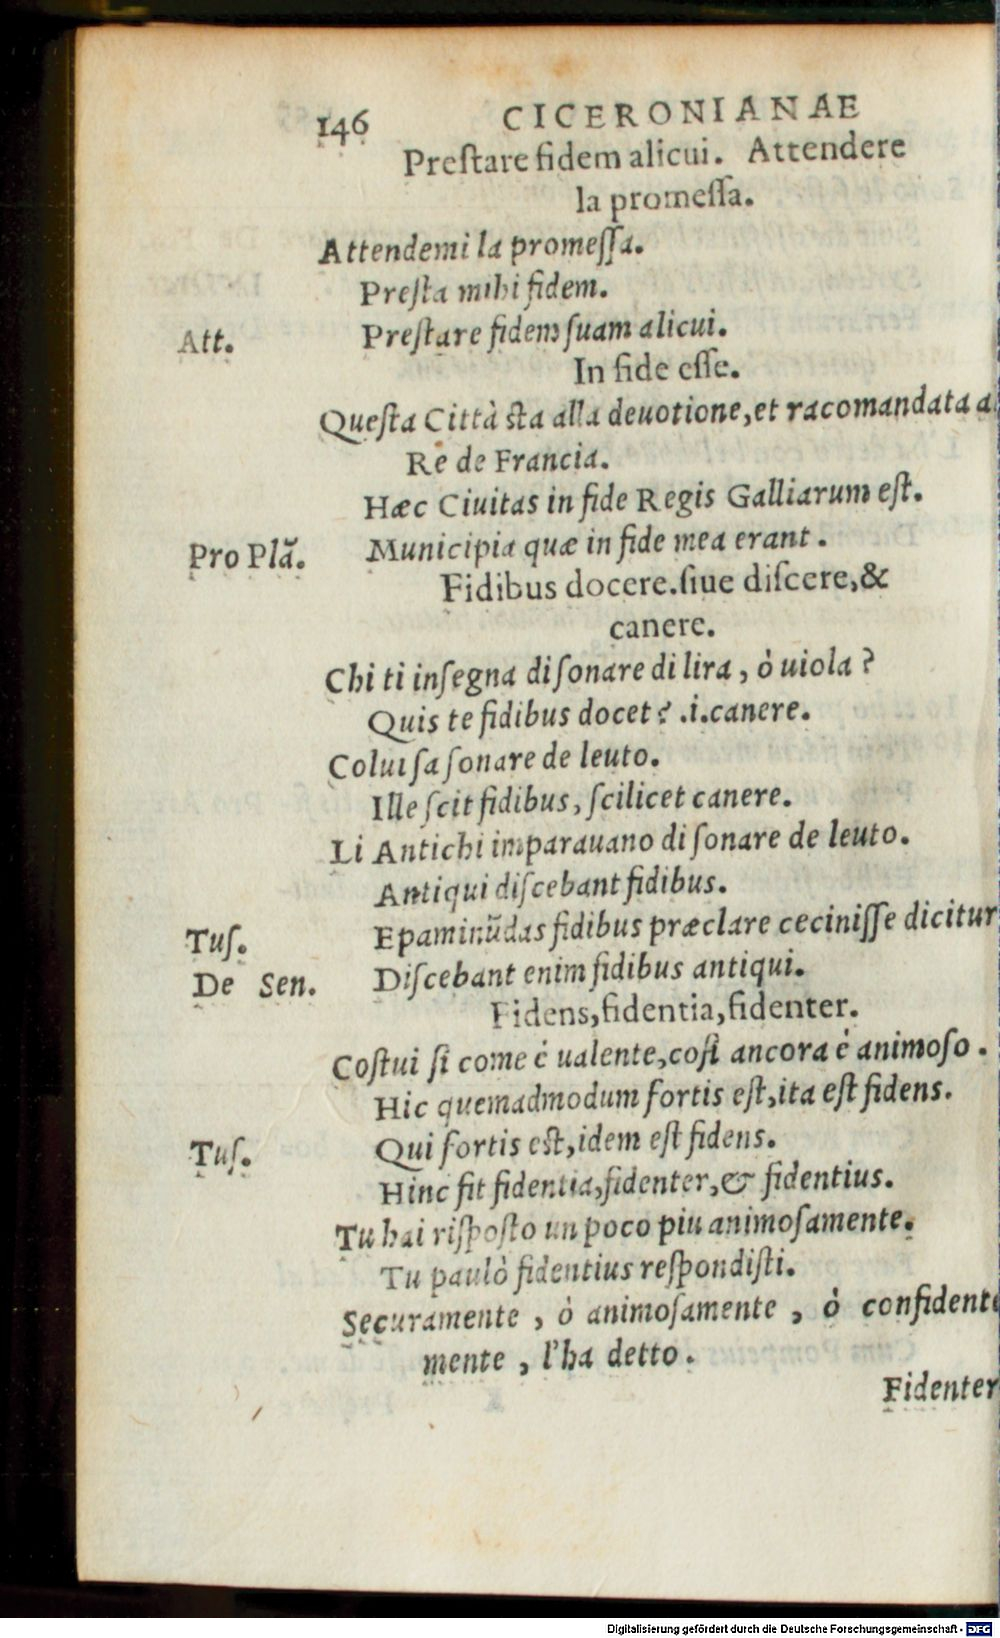 146 CICERONIANAE
Preſtare fidem alicui. Attendere
la promeſſa.
Attendemi la promeſſa.
Preſta mihi fidem.
Att. Preſtare fidem ſuam alicui.
In fide eſſe.
Queſta Città sta alla deuotione, et racomandata al
Re de Francia.
Hæc Ciuitas in fide Regis Galliarum eſt.
Pro Plã. Municipia quæ in fide mea erant.
Fidibus docere. ſiue diſcere, &
canere.
Chi ti inſegna di ſonare di lira, ò uiola?
Quis te fidibus docet? .i. canere.
Colui ſa ſonare de leuto.
Ille ſcit fidibus, ſcilicet canere.
Li Antichi imparauano di ſonare de leuto.
Antiqui diſcebant fidibus.
Tuſ. Epaminũdas fidibus præclare ceciniſſe dicitur
De Sen. Diſcebant enim fidibus antiqui.
Fidens, fidentia, fidenter.
Coſtui ſi come è ualente, coſi ancora è animoſo.
Hic quemadmodum fortis eſt, ita eſt fidens.
Tuſ. Qui fortis est, idem eſt fidens.
Hinc fit fidentia, fidenter, & fidentius.
Tu hai riſpoſto un poco piu animoſamente.
Tu paulò fidentius reſpondiſti.
Securamente, ò animoſamente, ò confidente
mente, l'ha detto.
Fidenter
Digitalisierung gefördert durch die Deutsche Forschungsgemeinschaft - DFG